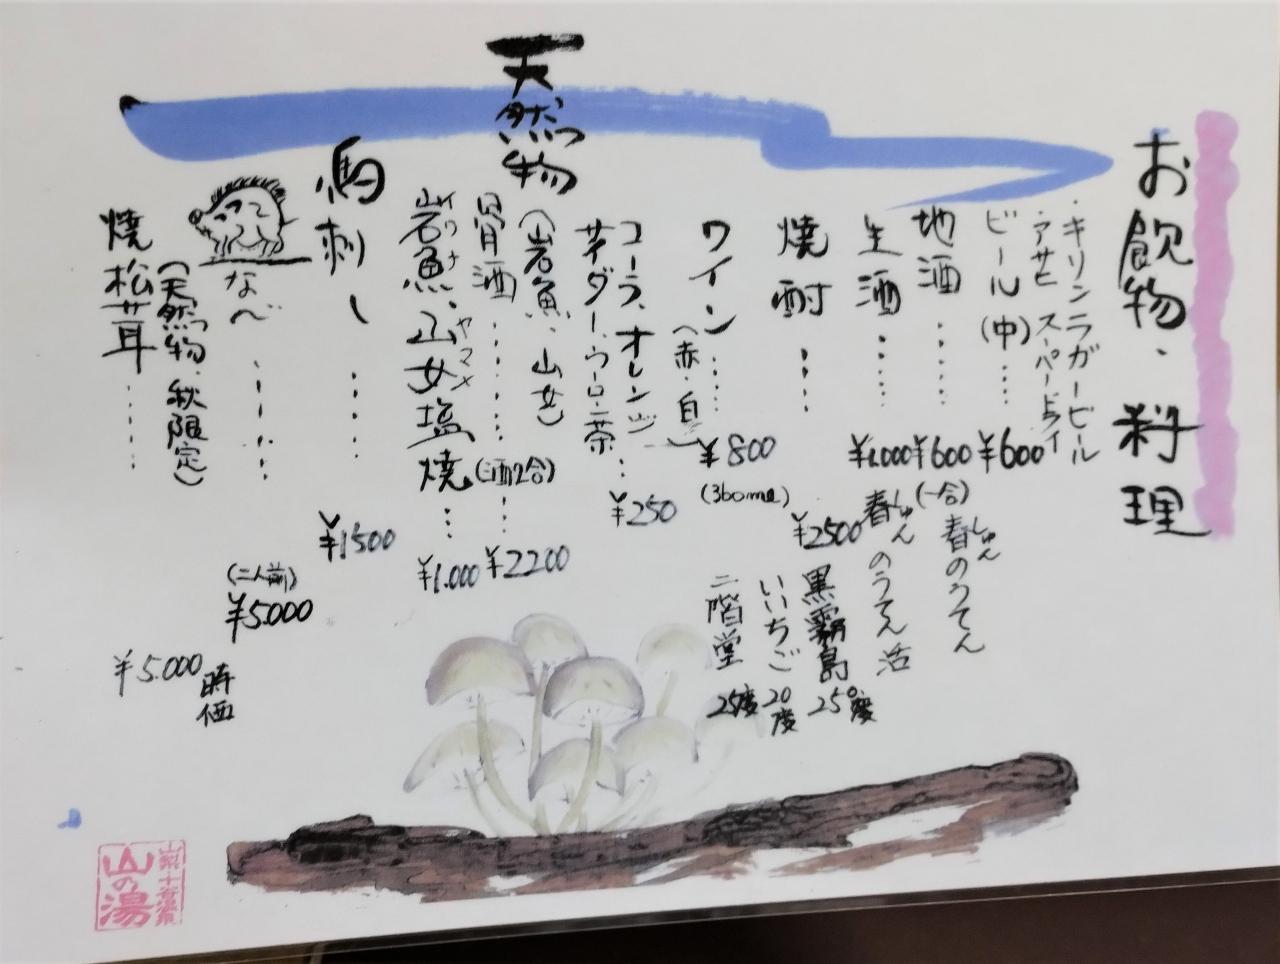 お飲物・料理
・キリンラガービール
・アサヒスーパードライ
ビール(中)……¥600
地酒……¥600
(一合)
春のうてん
しゅん
生酒……¥1.000
春のうてん 活
しゅん
焼酎……¥2500
黒霧島 25度
いいちご 20度
二階堂 25度
ワイン……¥800
(赤・白)
(360ml)
コーラ、オレンジ…¥250
サイダー、ウーロン茶
天然物
(岩魚、山女)
骨酒……(酒2合)…¥2200
岩魚・山女塩焼…¥1.000
イワナ ヤマメ
馬刺し……¥1500
なべ……(二人前)
¥5.000
焼松茸……¥5.000
(天然物・秋限定)
時価
山の湯